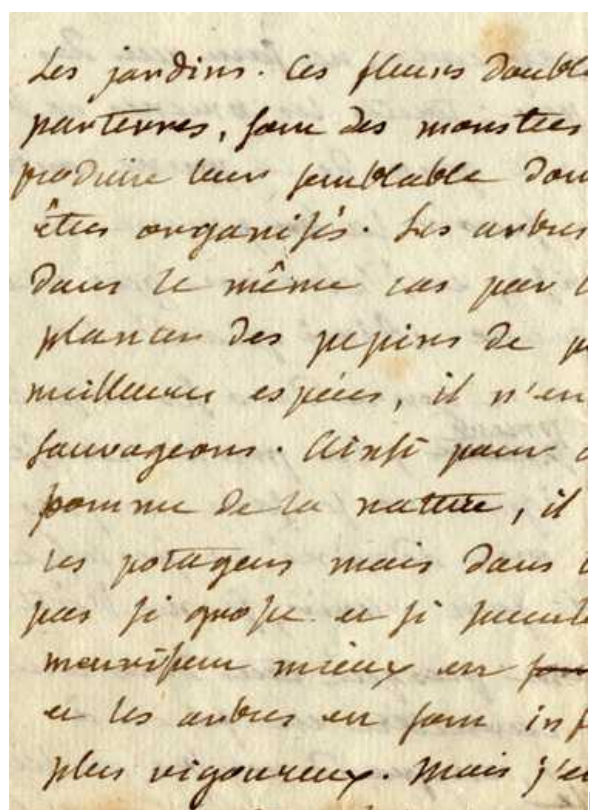 Les jardins. Ces fleurs doubl
parterres, sont des monstres
produire leur semblable don
êtres organisés. Les arbres
dans le même cas par l
planter des pepins de p
meilleures espéces, il n'en
sauvageons. Ainsi pour c
pomme de la nature, il
les potagers mais dans l
pas si grosse et si succule
meurissent mieux en
et les arbres en sont inf
plus vigoureux. Mais j'en